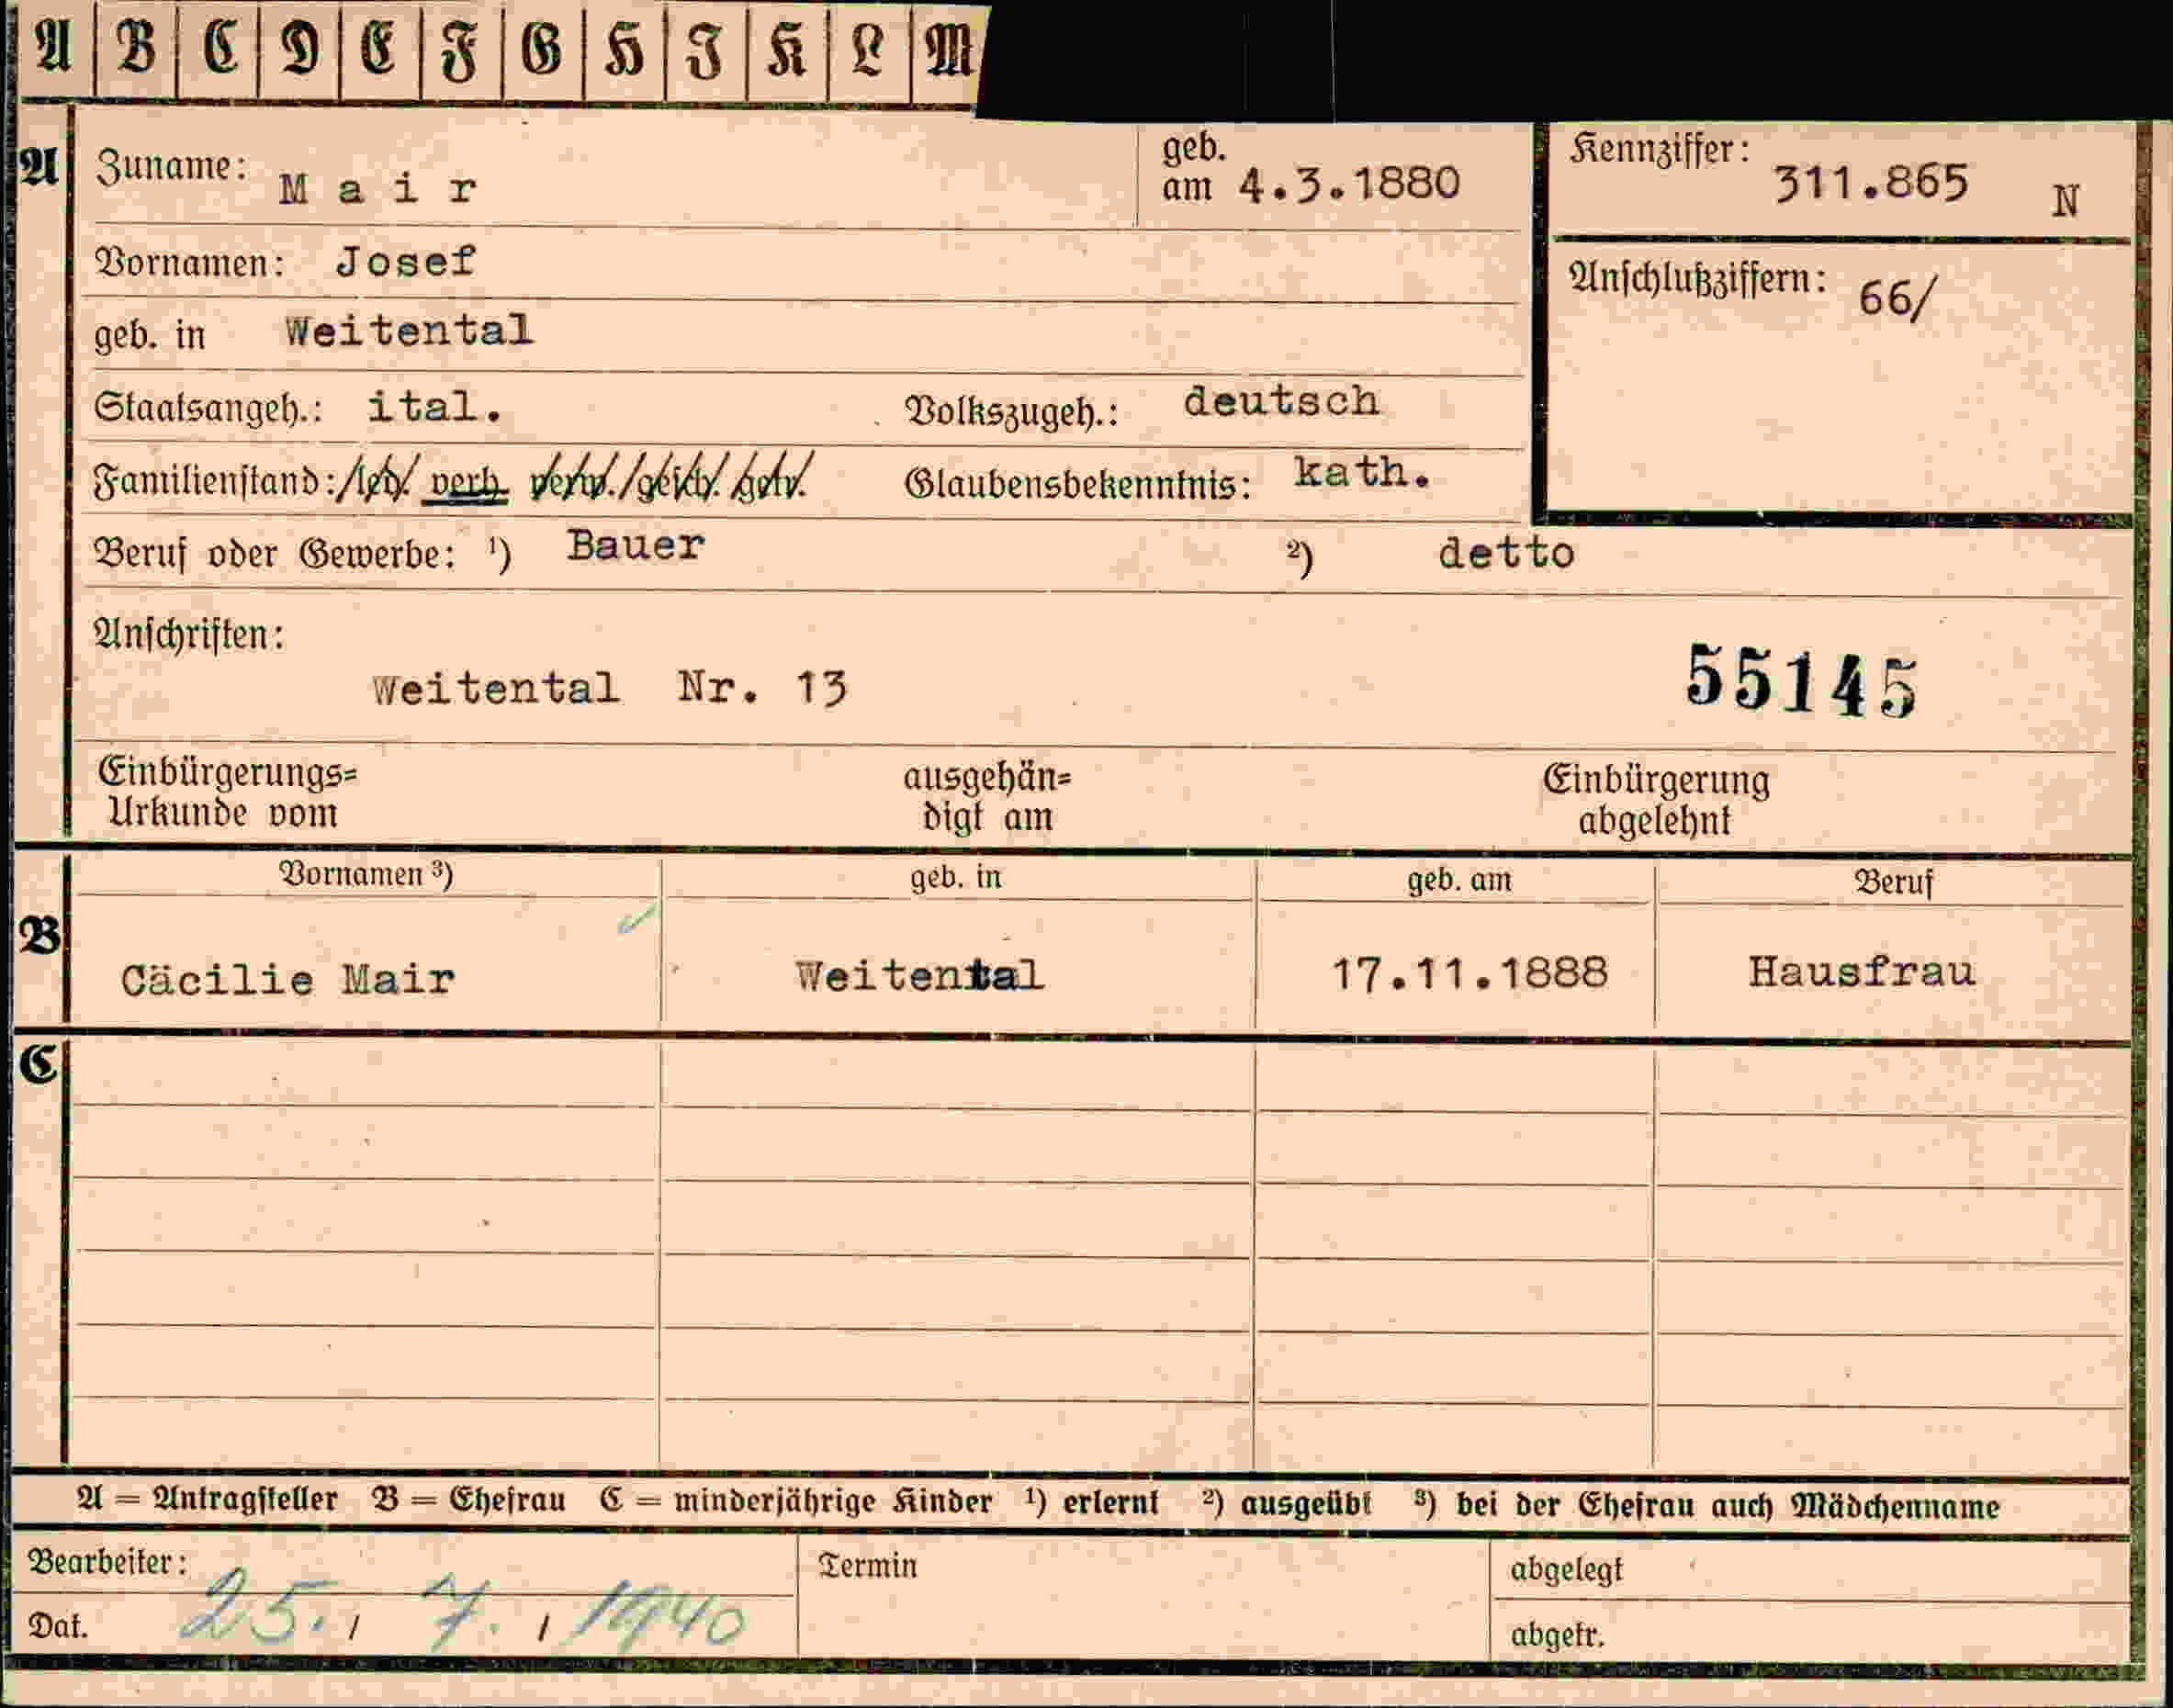 A B C D E F G H I K L M
A
Zuname: Mair
geb. am 4.3.1880
Kennziffer: 311.865 N
Vornamen: Josef
Anschlußziffern: 66/
geb. in Weitental
Staatsangeh.: ital. Volkszugeh.: deutsch
Familienstand: /led/ verh. verw./gesch./getr. Glaubensbekenntnis: kath.
Beruf oder Gewerbe: ¹) Bauer ²) detto
Anschriften:
Weitental Nr. 13 55145
Einbürgerungs=
Urkunde vom
ausgehän=
digt am
Einbürgerung
abgelehnt
B
Vornamen ³) geb. in geb. am Beruf
Cäcilie Mair Weitental 17.11.1888 Hausfrau
C
A = Antragsteller B = Ehefrau C = minderjährige Kinder ¹) erlernt ²) ausgeübt ³) bei der Ehefrau auch Mädchenname
Bearbeiter: Termin abgelegt
Dat. 25. / 7. / 1940 abgetr.